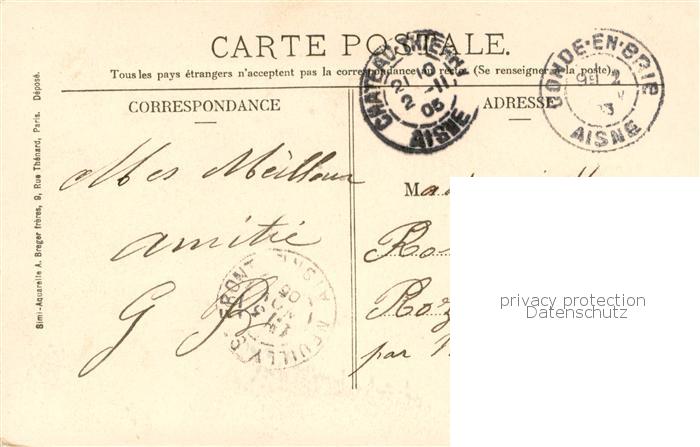 CARTE POSTALE.
Tous les pays étrangers n'acceptent pas la correspondance au recto. (Se renseigner à la poste).
CORRESPONDANCE
ADRESSE
Simi-Aquarelle A. Breger frères, 9, Rue Thénard, Paris. Déposé.
CHATEAU-THIERRY
2
-11
05
AISNE
CONDE-EN-BRIE
AISNE
Mes Meilleur
amitié
G
NEUILLY-ST-FRONT AISNE
par
privacy protection
Datenschutz